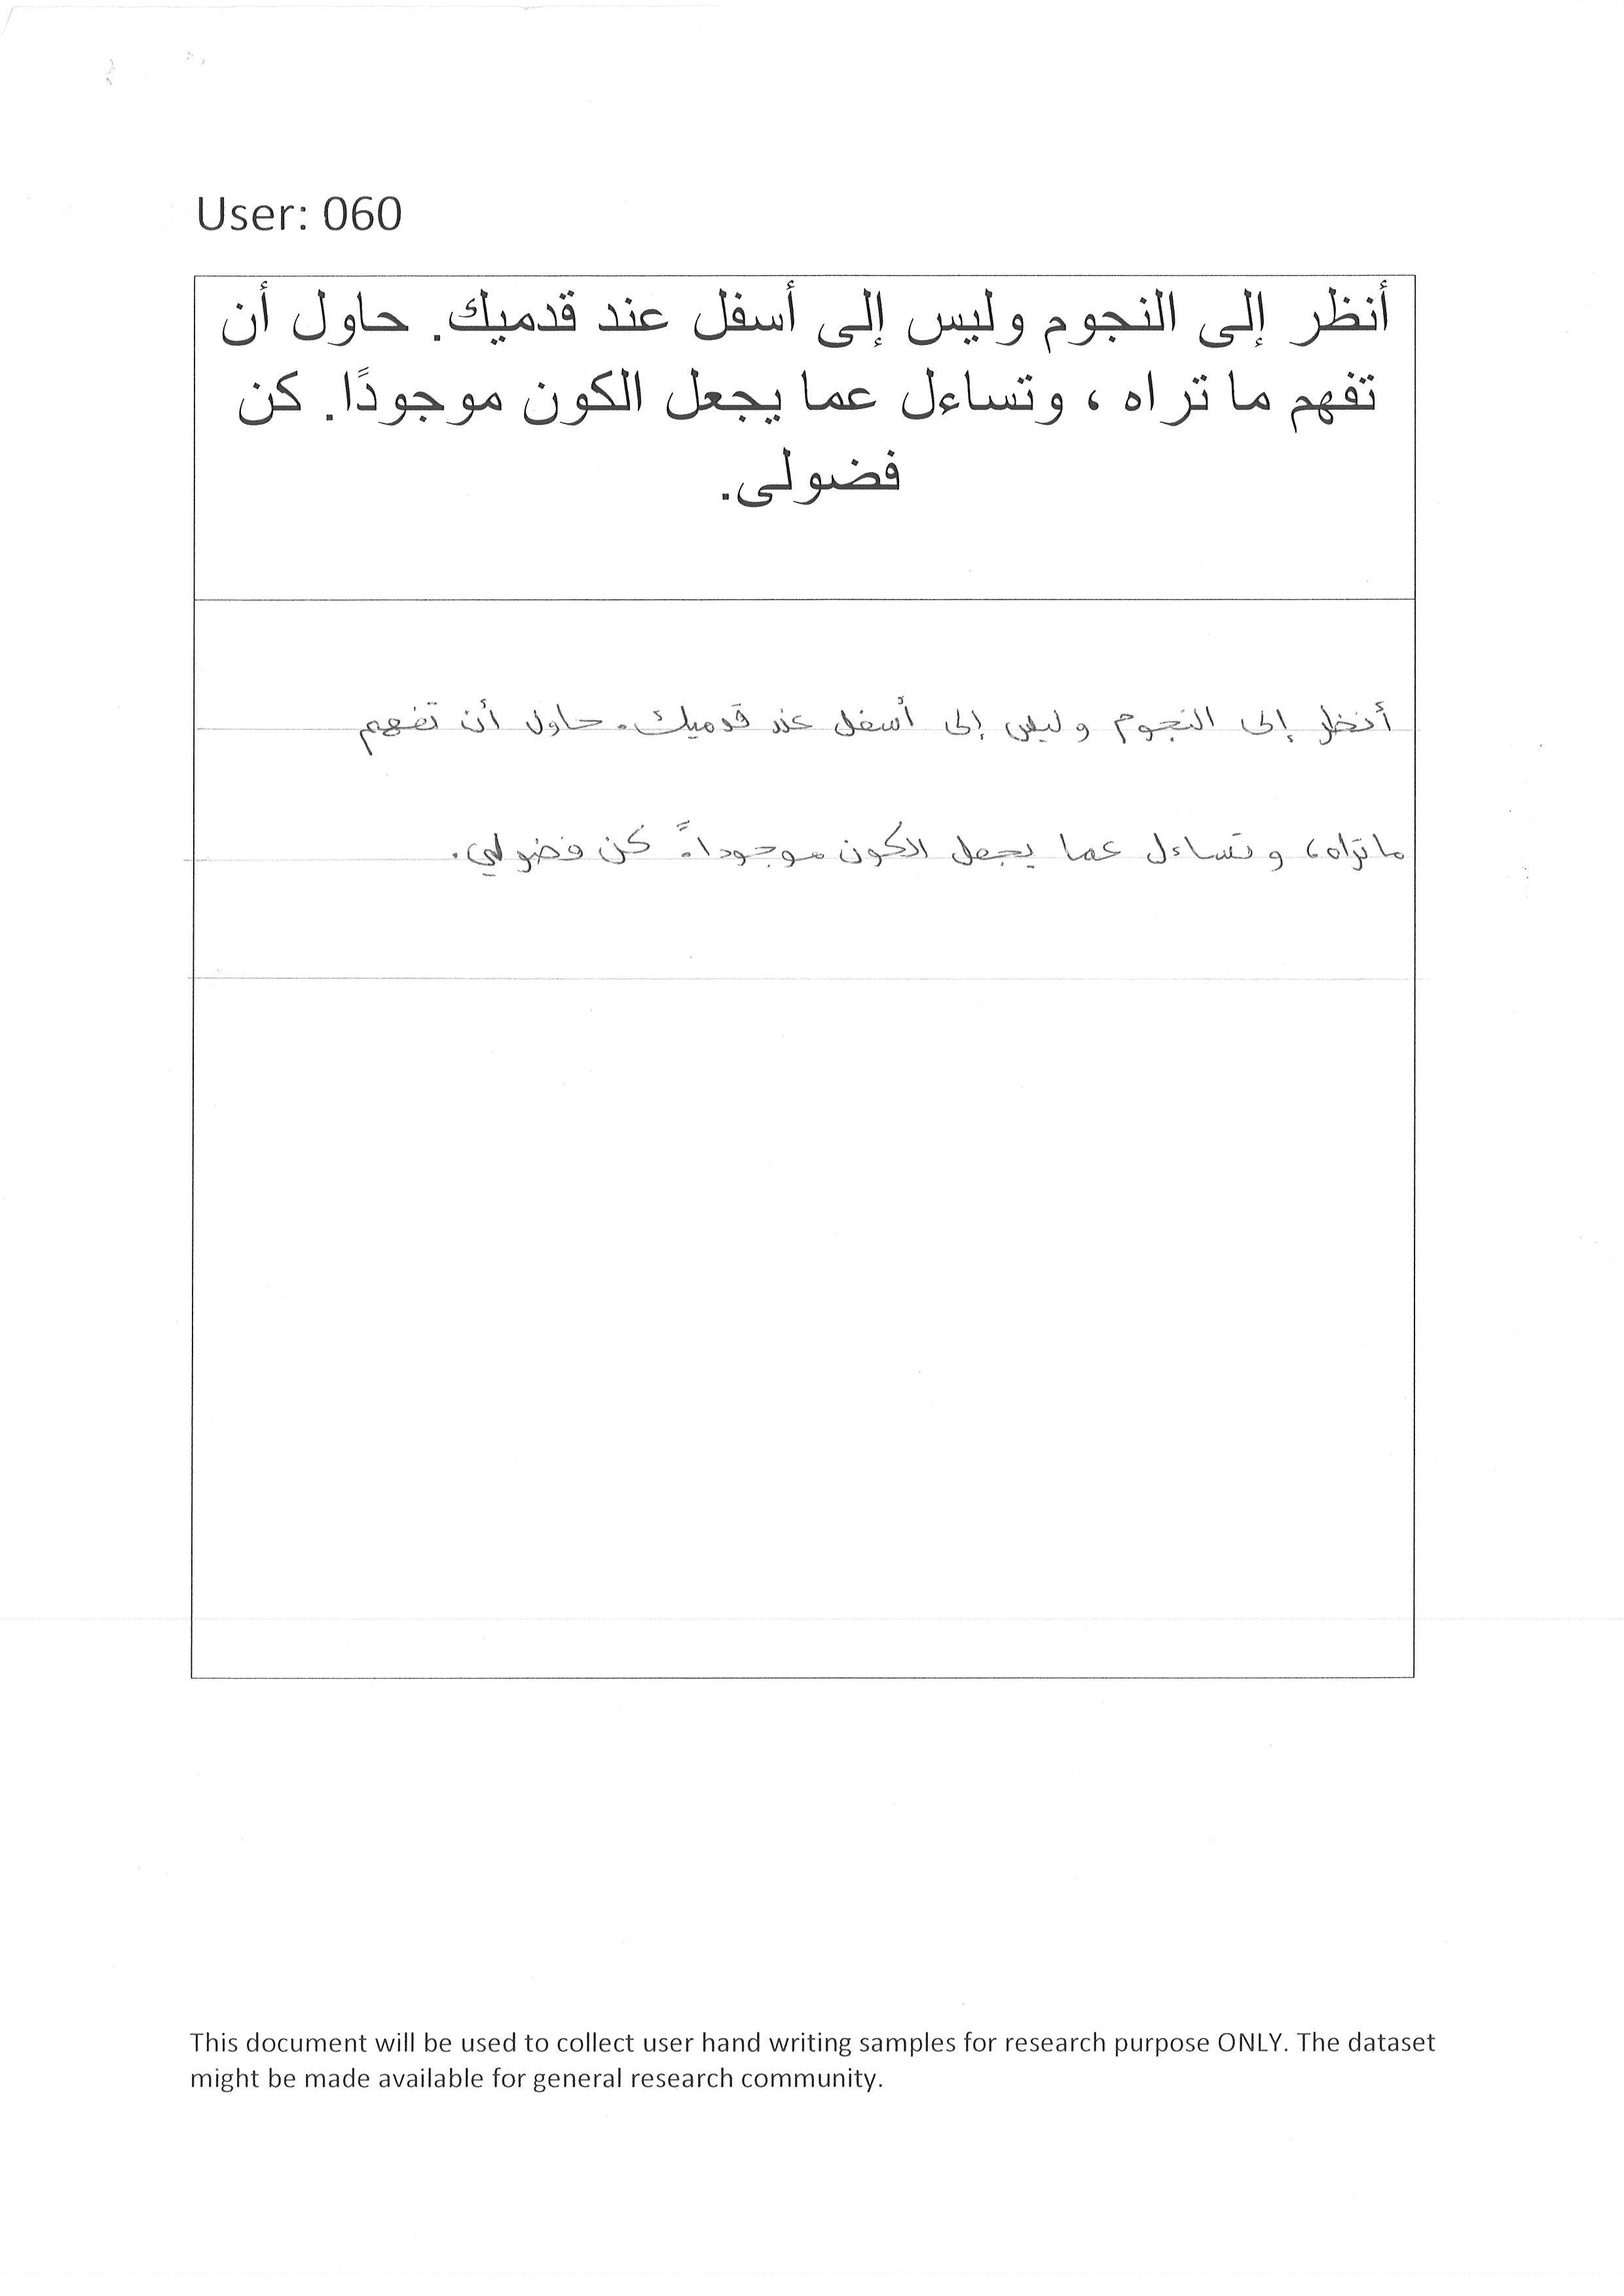 User: 060
أنظر إلى النجوم وليس إلى أسفل عند قدميك. حاول أن
تفهم ما تراه ، وتساءل عما يجعل الكون موجودًا. كن
فضولى.
أنظر إلى النجوم وليس إلى أسفل عند قدميك. حاول أن تفهم
ما تراه، وتساءل عما يجعل الكون موجوداً. كن فضولي.
This document will be used to collect user hand writing samples for research purpose ONLY. The dataset
might be made available for general research community.